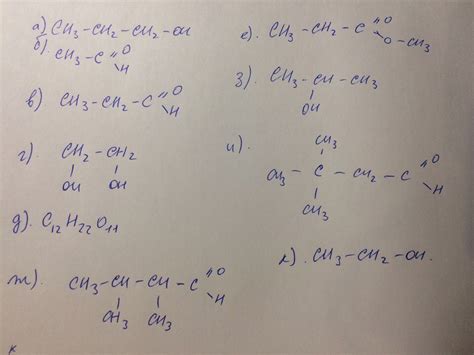 а) CH3-CH2-CH2-OH
б). CH3-C=O
H
в) CH3-CH2-C=O
H
г). CH2-CH2
OH OH
д). C12H22O11
ж) CH3-CH-CH-C=O
H
CH3 CH3
к
е). CH3-CH2-C=O
O-CH3
з) CH3-CH-CH3
OH
и) CH3
CH3-C-CH2-C=O
H
CH3
л). CH3-CH2-OH.